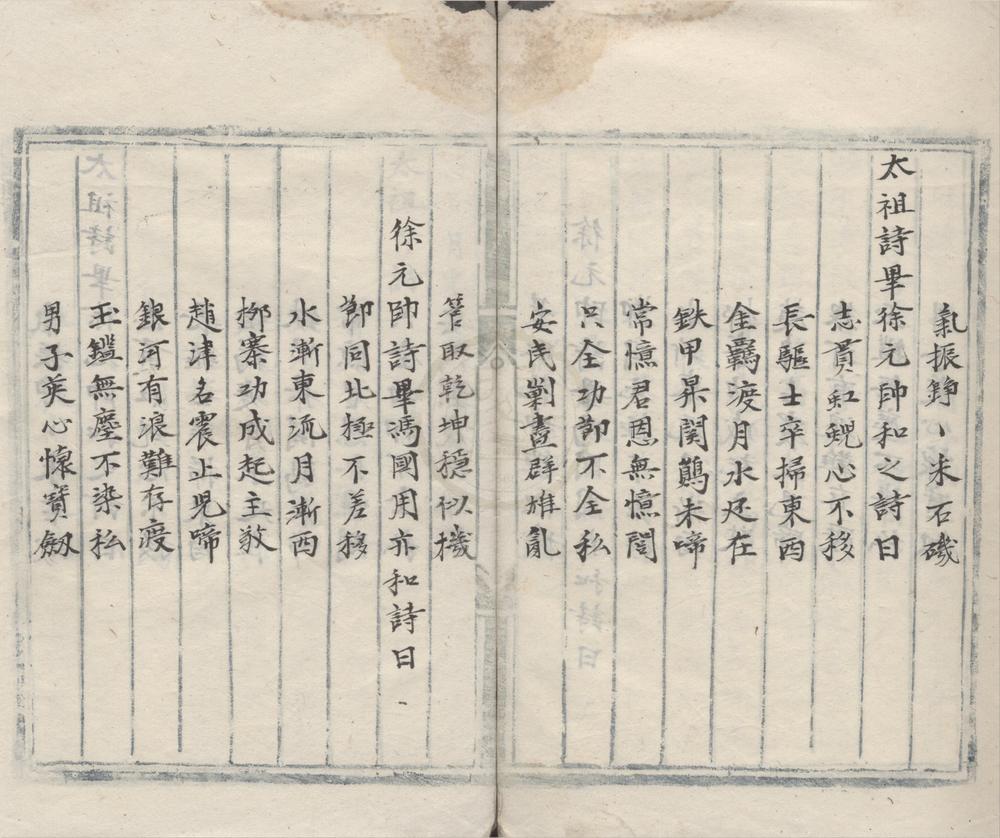 氣振錚〻米石磯
太祖詩畢徐元帥和之詩曰
志貫虹蜺心不移
長驅士卒掃東西
金羈渡月水还在
鉄甲昇関鷄未啼
常憶君恩無憶閨
只全功節不全私
安民剿盡群雄亂
管取乾坤穏似機
徐元帥詩畢馮國用亦和詩曰
節同北極不差移
水漸東流月漸西
柳寨功成起主敬
趙津名震止児啼
銀河有浪難存渡
玉鑑無塵不染私
男子英心懷寶劔